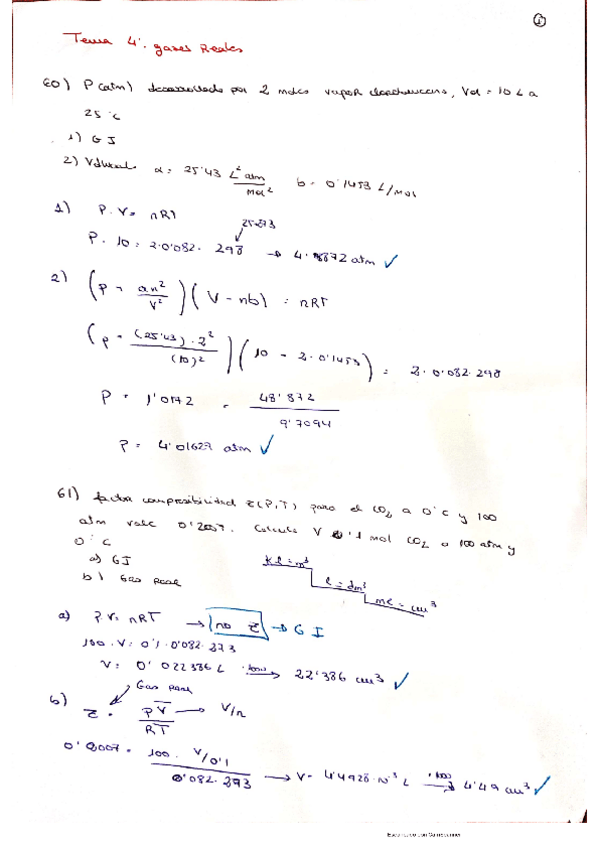 1
Tema 4: gases Reales
60) P (atm) desarrollada por 2 moles vapor clorobenceno, Vol = 10 L a
25 °C
1) G I
2) V.d.waals a = 25'43 L² atm / mol² b = 0'1453 L/mol
1) P. V = nRT
25+273
P. 10 = 2.0'082. 298 → 4.8872 atm ✓
2) (P + an²/V²) (V - nb) = nRT
(P + (25'43).2²/(10)²) (10 - 2.0'1453) = 2.0'082.298
P + 1'0172 = 48'872/9'7094
P = 4'01627 atm ✓
61) factor compresibilidad z(P,T) para el CO₂ a 0°C y 100
atm vale 0'2007. Calcula V 0'1 mol CO₂ a 100 atm y
0°C
a) GI
b) Gas real
kl = m³
l = dm³
ml = cm³
a) P.V = nRT → no z → G I
100.V = 0'1.0'082.273
V = 0'022386 L ·1000 → 22'386 cm³ ✓
Gas real
b) z = PV̅/RT → V/n
0'2007 = 100. V/0'1 / 0'082.273 → V = 4'4928.10⁻³ L → 4'49 cm³ ✓